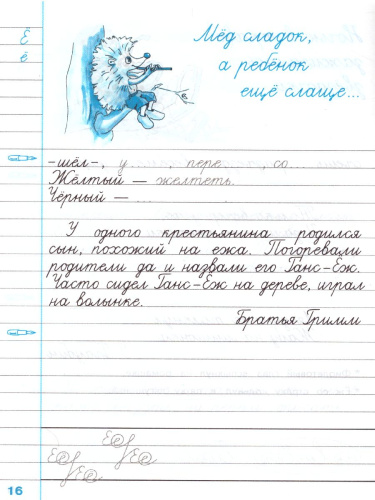 Ё
ё
Мёд сладок,
а ребёнок
ещё слаще...
-шёл-, у ....., пере ....., со.....
Жёлтый — желтеть.
Чёрный — ...
У одного крестьянина родился
сын, похожий на ежа. Погоревали
родители да и назвали его Ганс-Ёж.
Часто сидел Ганс-Ёж на дереве, играл
на волынке.
Братья Гримм
16